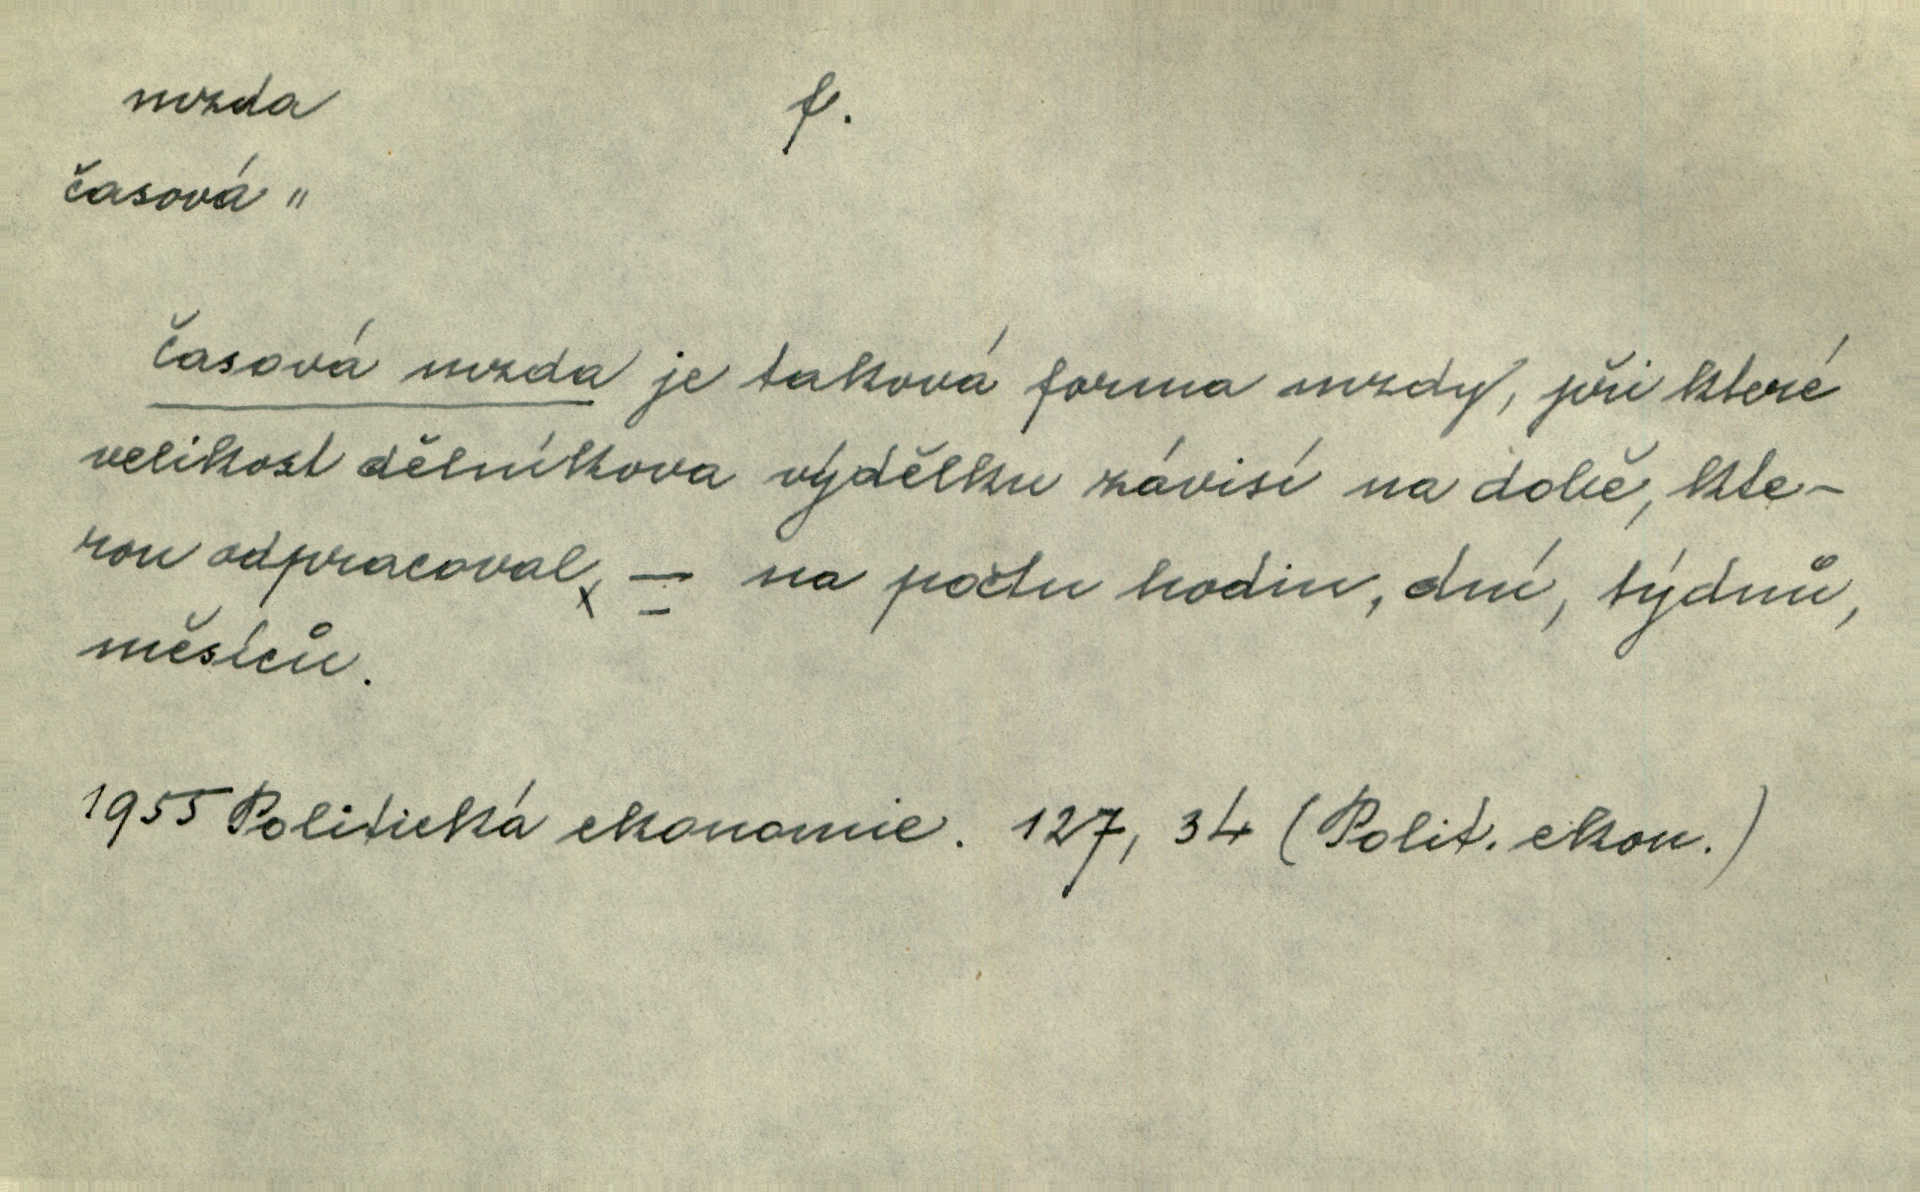 mzda f.
časová "
časová mzda je taková forma mzdy, při které
velikost dělníkova výdělku závisí na době, kte-
rou odpracoval, — na počtu hodin, dní, týdnů,
měsíců.
1955 Politická ekonomie. 127, 34 (Polit. ekon.)